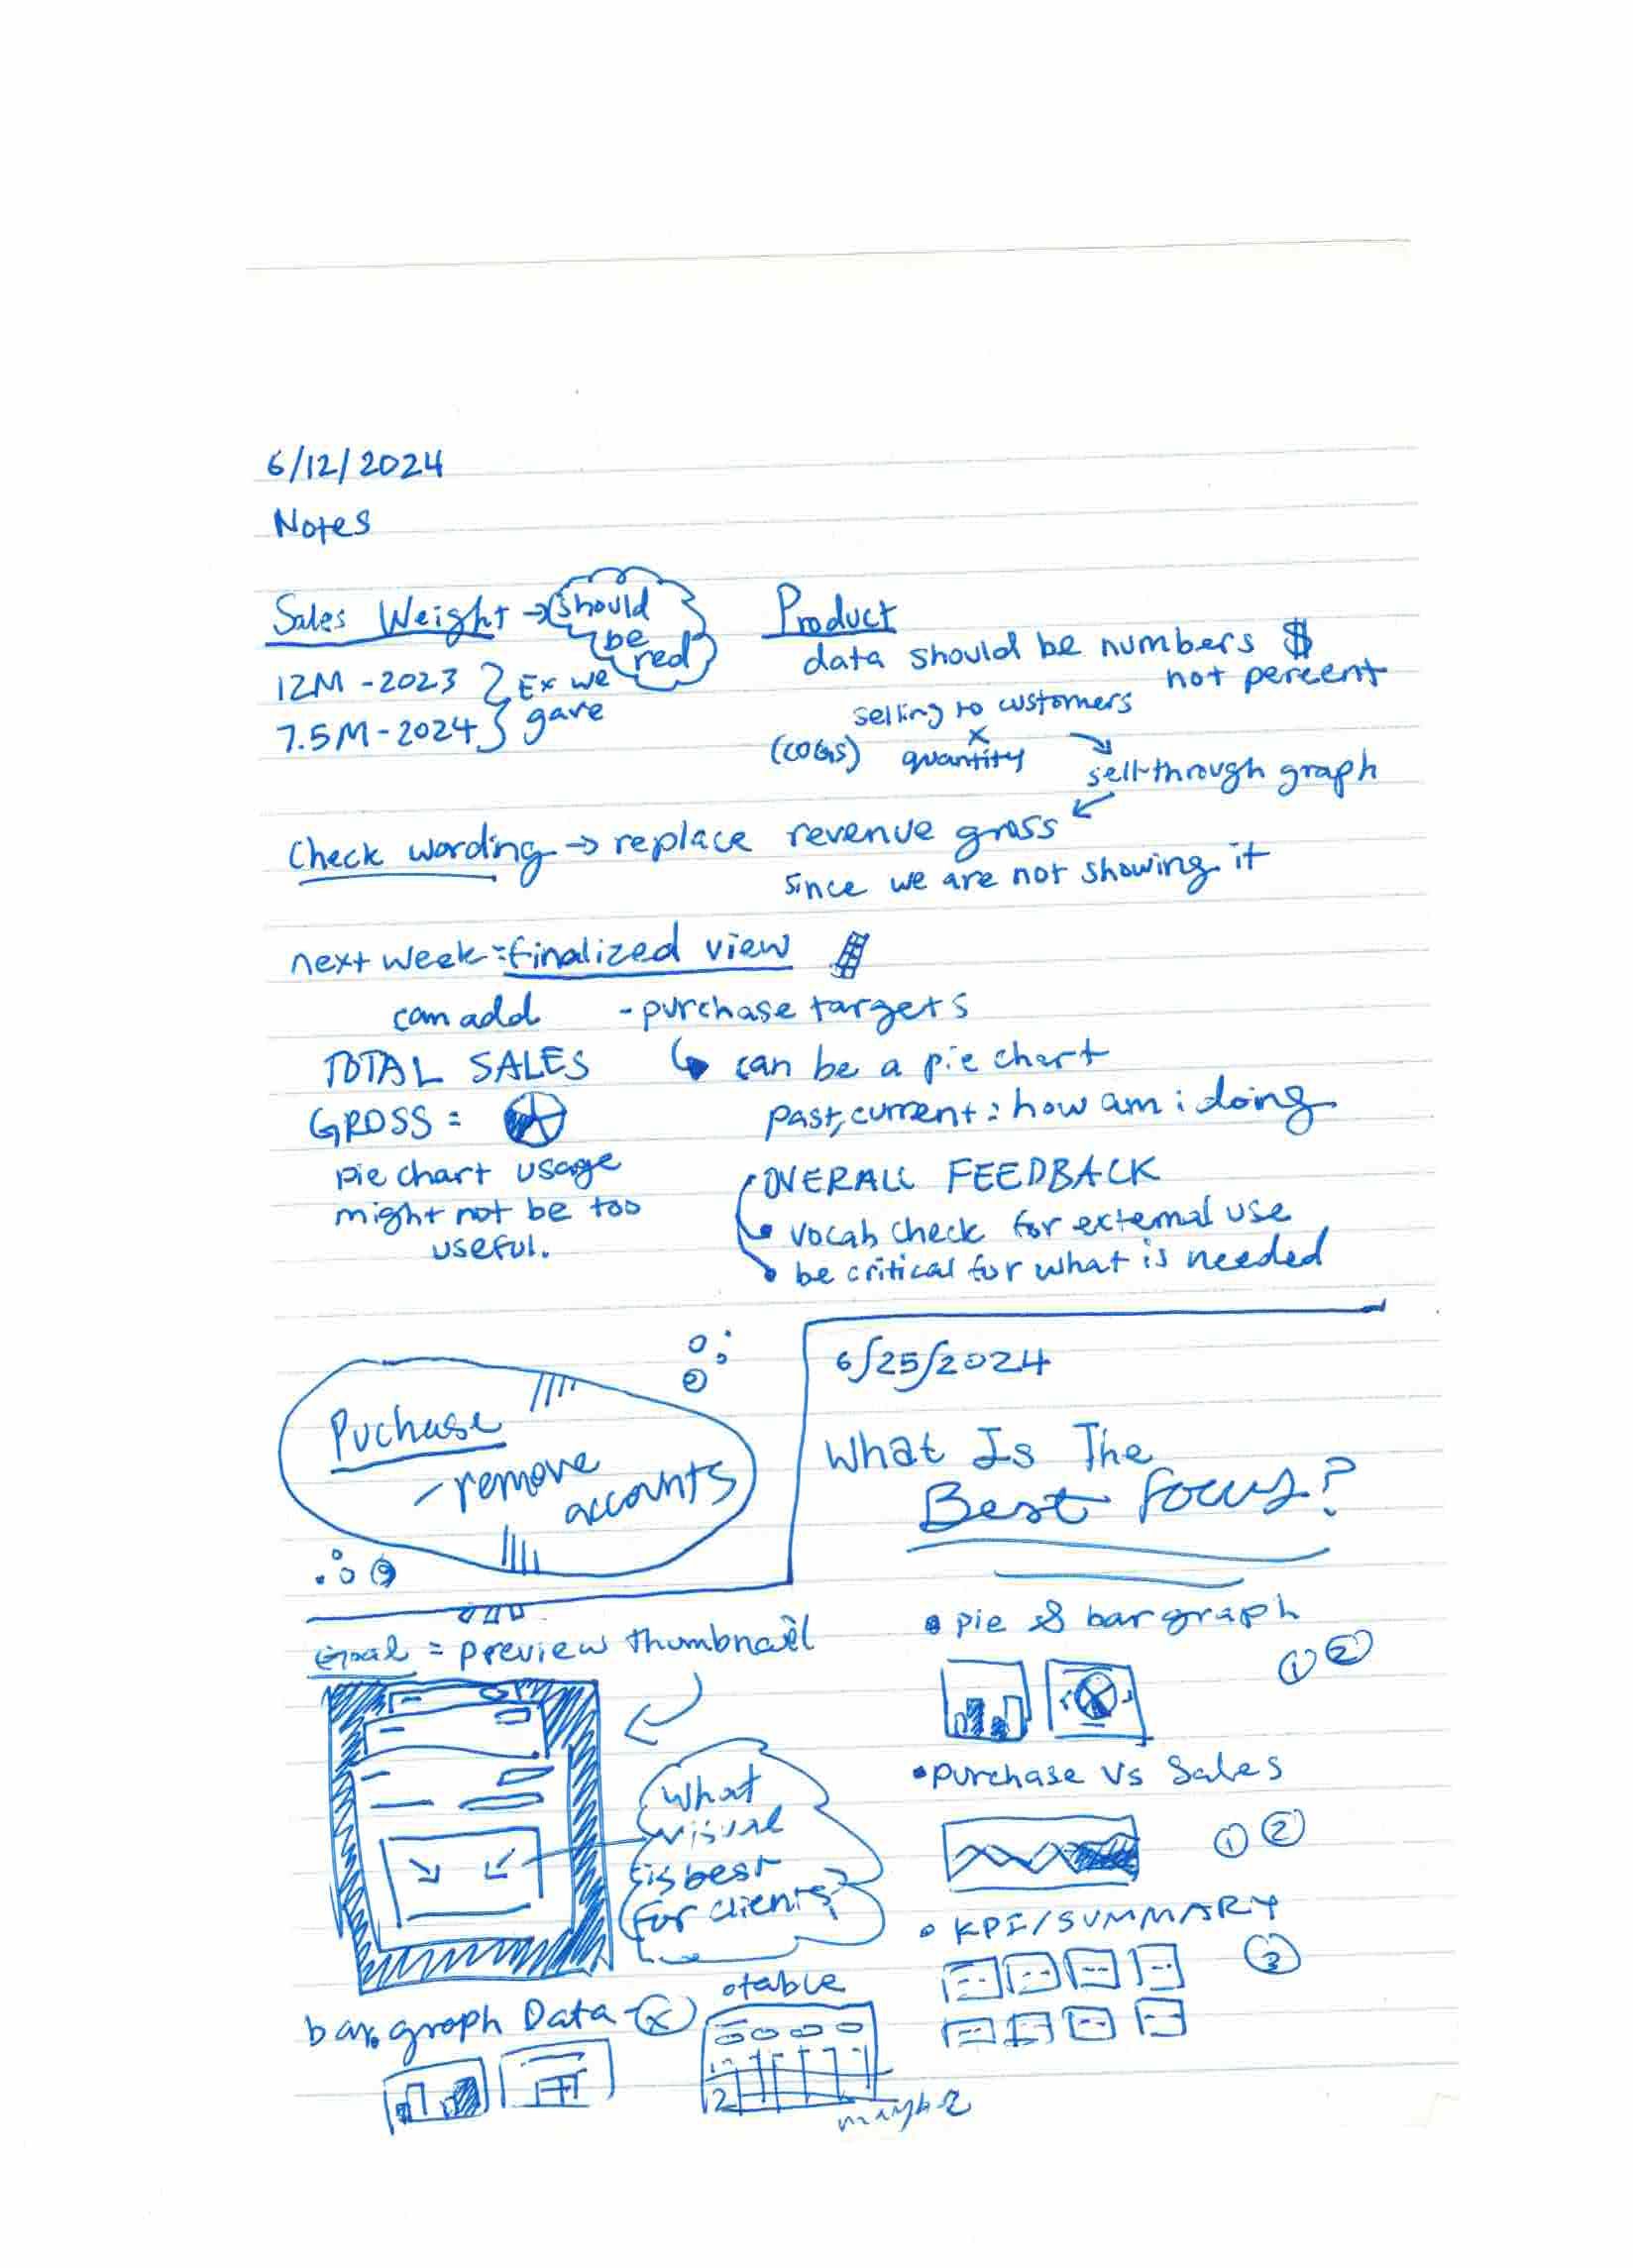 6/12/2024
Notes
Sales Weight → should
be
red
12M - 2023 } Ex we
7.5M - 2024 } gave
Product
data should be numbers $
not percent
selling to customers
x
(COGS) quantity
sell-through graph
Check wording → replace revenue gross
since we are not showing it
next week = finalized view
can add - purchase targets
TOTAL SALES
GROSS =
pie chart usage
might not be too
useful.
↳ can be a pie chart
past, current : how am i doing
OVERALL FEEDBACK
vocab check for external use
be critical for what is needed
Puchase
- remove
accounts
6/25/2024
What Is The
Best Focus?
Goal = preview thumbnail
What
visual
is best
for clients?
bar graph Data - x
• table
1
2
maybe
• pie & bar graph
① ②
• purchase vs Sales
① ②
• KPI/SUMMARY
③